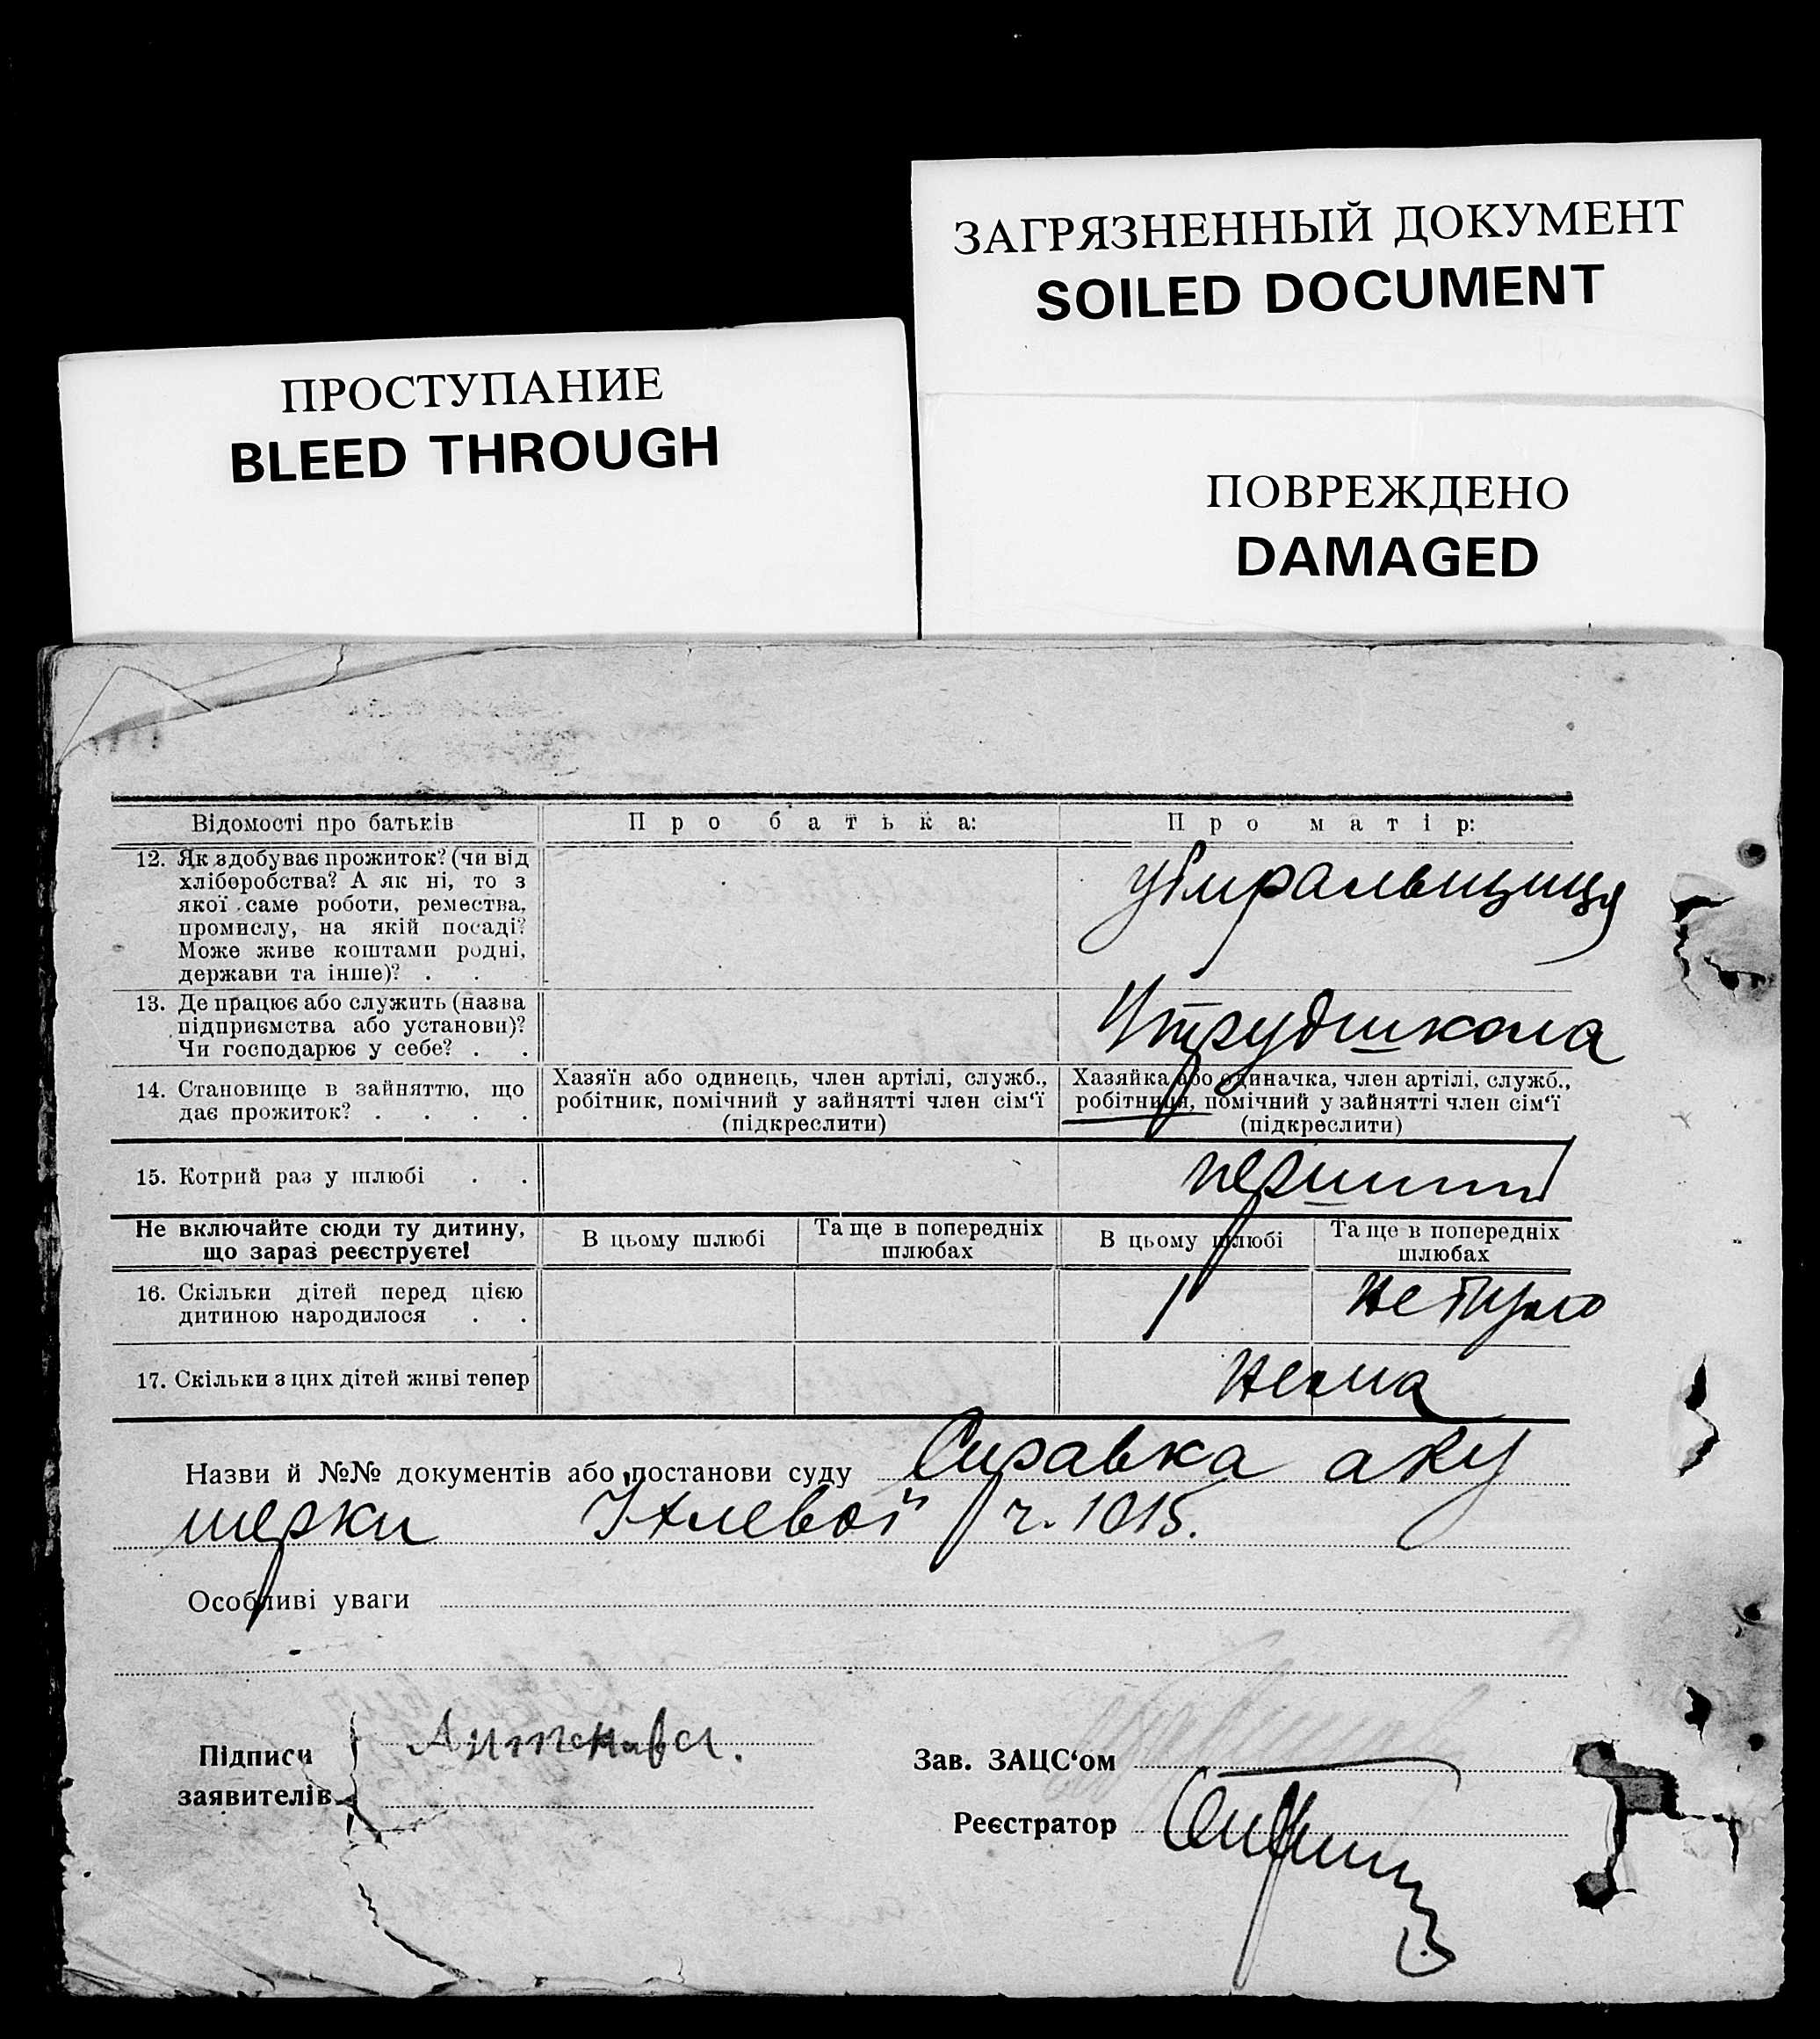 ЗАГРЯЗНЕННЫЙ ДОКУМЕНТ
SOILED DOCUMENT
ПРОСТУПАНИЕ
BLEED THROUGH
ПОВРЕЖДЕНО
DAMAGED
Відомості про батьків
П р о б а т ь к а:
П р о м а т і р:
12. Як здобуває прожиток? (чи від
хліборобства? А як ні, то з
якої саме роботи, ремества,
промислу, на якій посаді?
Може живе коштами родні,
держави та інше)? . . .
убиральщиця
13. Де працює або служить (назва
підприємства або установи)?
Чи господарює у себе? . .
трудшкола
14. Становище в зайняттю, що
дає прожиток? . . . .
Хазяїн або одинець, член артілі, служб.,
робітник, помічний у зайнятті член сім‘ї
(підкреслити)
Хазяйка або одиначка, член артілі, служб.,
робітниця, помічний у зайнятті член сім‘ї
(підкреслити)
15. Котрий раз у шлюбі . .
перший
Не включайте сюди ту дитину,
що зараз реєструєте!
В цьому шлюбі
Та ще в попередніх
шлюбах
В цьому шлюбі
Та ще в попередніх
шлюбах
16. Скільки дітей перед цією
дитиною народилося . .
1
не було
17. Скільки з цих дітей живі тепер
нема
Назви й №№ документів або постанови суду Справка аку
шерки ч. 1015.
Особливі уваги
Підписи
заявителів
Зав. ЗАЦС‘ом
Реєстратор